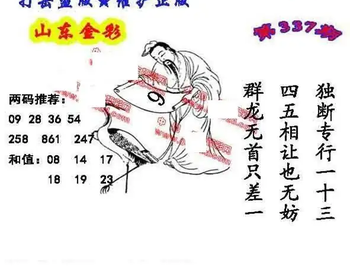 打击盗版 维护正版
山东金彩
第337期
两码推荐：
09 28 36 54
258 861 247
和值：08 14 17
18 19 23
9
独断专行一十三
四五相让也无妨
群龙无首只差一